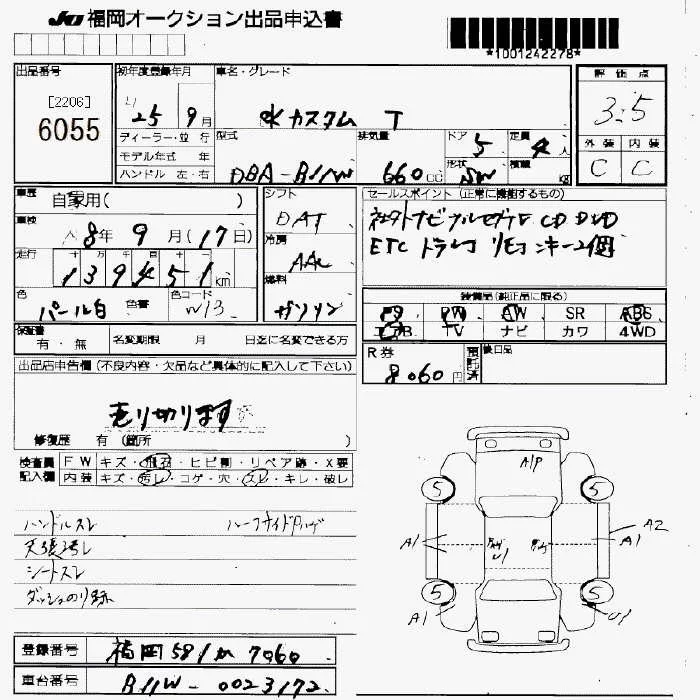 JU 福岡オークション出品申込書
*1001242278*
出品番号 [2206] 6055
初年度登録年月 25年 9月
車名・グレード カスタム T
評価点 3.5
外装 内装
C C
ディーラー・並行
モデル年式 年
ハンドル 左・右
型式 DBA-B11W
排気量 660cc
ドア 5
定員 4人
形状 SW
積載 kg
車歴 自家用( )
車検 8年 9月(17日)
走行 十万千百十一
139451km
色 パール白 色替
色コード W13
シフト DAT
冷房 AAC
燃料 ガソリン
セールスポイント(正常に機能するもの)
社外ナビフルセグTV CD DVD
ETC ドラレコ リモコンキー2個
装備品(純正品に限る)
PS PW AW SR ABS
エアB. TV ナビ カワ 4WD
保証書 有・無
名変期限 月 日迄に名変できる方
R券 8,060円
預託済
後日品
出品店申告欄(不良内容・欠品など具体的に記入して下さい)
売り切ります
修復歴 有(箇所 )
検査員 FW キズ・飛石・ヒビ割・リペア跡・X要
記入欄 内装 キズ・汚レ・コゲ・穴・スレ・キレ・破レ
ハンドルスレ
天張汚レ
シートスレ
ダッシュのり跡
A/P
5 5
A1 U1 A1 A2
5 5
A1 U1
登録番号 福岡 581 か 7060
車台番号 B11W-0023172